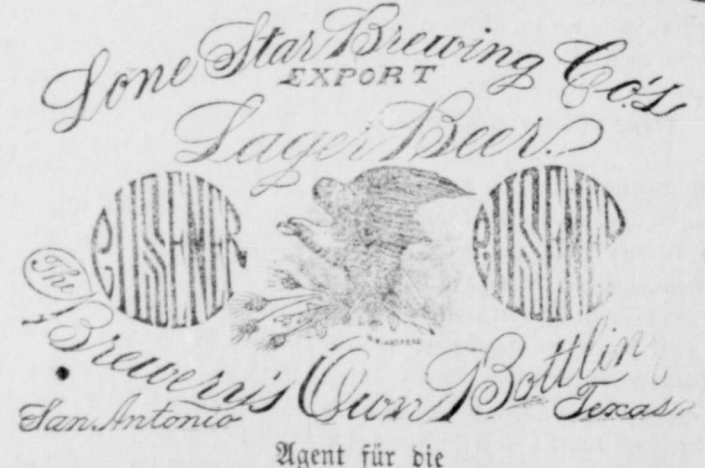 Lone Star Brewing Co's
EXPORT
Lager Beer.
PILISENER
PILISENER
The
Brewery's Own Bottlin
San Antonio Texas
Agent für die